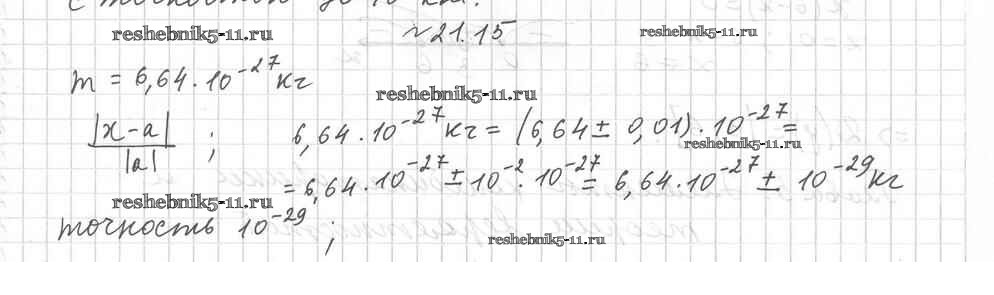 с точностью до 10 км.
reshebnik5-11.ru
№21.15
reshebnik5-11.ru
m = 6,64·10⁻²⁷ кг
reshebnik5-11.ru
|x-a| / |a| ; 6,64·10⁻²⁷ кг = (6,64 ± 0,01)·10⁻²⁷ =
reshebnik5-11.ru
= 6,64·10⁻²⁷ ± 10⁻²·10⁻²⁷ = 6,64·10⁻²⁷ ± 10⁻²⁹ кг
reshebnik5-11.ru
точность 10⁻²⁹ ;
reshebnik5-11.ru